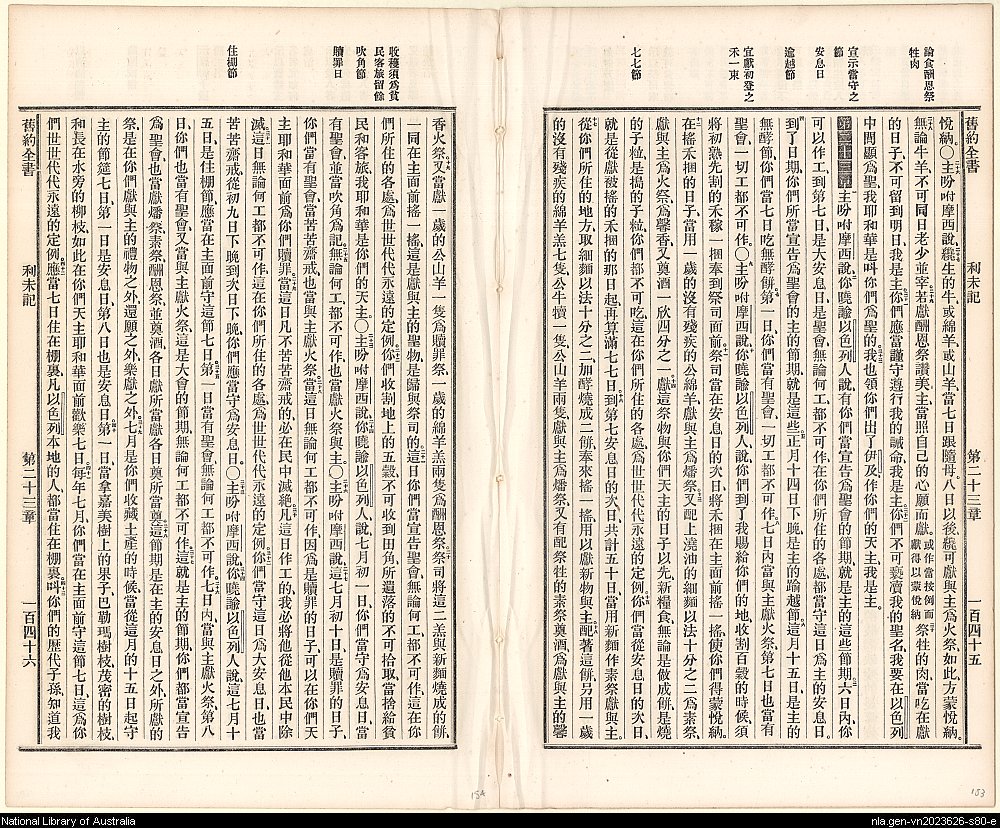 論食酬恩祭
牲肉
安息日
宣示當守之
節
逾越節
宜獻初登之
禾一束
七七節
舊約全書
利未記
第二十三章
一百四十五
悅納〇主吩咐摩西說纔生的牛或綿羊或山羊當七日跟隨母八日以後纔可獻與主爲火祭如此方蒙悅納
無論牛羊不可同日老少並宰若獻酬恩祭讚美主當照自己的心願而獻或作當按例而獻得以蒙悅納祭牲的肉當吃在獻
的日子不可留到明日我是主你們應當謹守遵行我的誡命我是主你們不可褻瀆我的聖名我要在以色列
中間顯爲聖我耶和華是叫你們爲聖的我也領你們出了伊及作你們的天主我是主
第二十三章主吩咐摩西說你曉諭以色列人說有你們當宣告爲聖會的節期就是主的這些節期六日內你
可以作工到第七日是大安息日是聖會無論何工都不可作在你們所住的各處都當守這日爲主的安息日
到了日期你們所當宣告爲聖會的主的節期就是這些正月十四日下晚是主的踰越節這月十五日是主的
無酵節你們當七日吃無酵餅第一日你們當有聖會一切工都不可作七日內當與主獻火祭第七日也當有
聖會一切工都不可作〇主吩咐摩西說你曉諭以色列人說你們到了我賜給你們的地收割百穀的時候須
將初熟先割的禾稼一捆奉到祭司面前祭司當在安息日的次日將禾捆在主面前搖一搖使你們得蒙悅納
在搖禾捆的日子當用一歲的沒有殘疾的公綿羊獻與主爲燔祭又配上澆油的細麵以法十分之二爲素祭
獻與主爲火祭爲馨香又奠酒一欣四分之一獻這祭物與你們天主的日子以先新糧食無論是做成餅是燒
的子粒是搗的子粒你們都不可吃這在你們所住的各處爲世世代代永遠的定例你們當從安息日的次日
就是從獻被搖的禾捆的那日起再算滿七七日到第七安息日的次日共計五十日當用新麵作素祭獻與主
從你們所住的地方取細麵以法十分之二加酵燒成二餅奉來搖一搖用以獻新物與主配著這餅另用一歲
的沒有殘疾的綿羊羔七隻公牛犢一隻公山羊兩隻獻與主爲燔祭又有配祭牲的素祭奠酒爲獻與主的馨
收穫須爲貧
民客旅留餘
吹角節
贖罪日
住棚節
香火祭又當獻一歲的公山羊一隻爲贖罪祭一歲的綿羊羔兩隻爲酬恩祭祭司將這二羔與新麵燒成的餅
一同在主面前搖一搖這是獻與主的聖物是歸與祭司的這日你們當宣告聖會無論何工都不可作這在你
們所住的各處爲世世代代永遠的定例你們收割地上的五穀不可收到田角所遺落的不可拾取當捨給貧
民和客旅我耶和華是你們的天主〇主吩咐摩西說你曉諭以色列人說七月初一日你們當守爲安息日當
有聖會並當吹角爲記無論何工都不可作也當獻火祭與主〇主吩咐摩西說這七月初十日是贖罪的日子
你們當有聖會當苦苦齋戒也當與主獻火祭當這日無論何工都不可作因爲是贖罪的日子可以在你們天
主耶和華面前爲你們贖罪當這日凡不苦苦齋戒的必在民中滅絕凡這日作工的我必將他從他本民中除
滅這日無論何工都不可作這在你們所住的各處爲世世代代永遠的定例你們當守這日爲大安息日也當
苦苦齋戒從初九日下晚到次日下晚你們應當守爲安息日〇主吩咐摩西說你曉諭以色列人說這七月十
五日是住棚節應當在主面前守這節七日第一日當有聖會無論何工都不可作七日內當與主獻火祭第八
日你們也當有聖會又當與主獻火祭這是大會的節期無論何工都不可作這就是主的節期你們都當宣告
爲聖會也當獻燔祭素祭酬恩祭並奠酒各日獻所當獻各日奠所當奠這節期是在主的安息日之外所獻的
祭是在你們獻與主的禮物之外還願之外樂獻之外七月是你們收藏土產的時候當從這月的十五日起守
主的節筵七日第一日是安息日第八日也是安息日第一日當拿嘉美樹上的果子巴勒瑪樹枝茂密的樹枝
和長在水旁的柳枝如此在你們天主耶和華面前歡樂七日每年七月你們當在主面前守這節七日這爲你
們世世代代永遠的定例應當七日住在棚裏凡以色列本地的人都當住在棚裏叫你們的歷代子孫知道我
舊約全書
利未記
第二十三章
一百四十六
154
153
National Library of Australia
nla.gen-vn2023626-s80-e